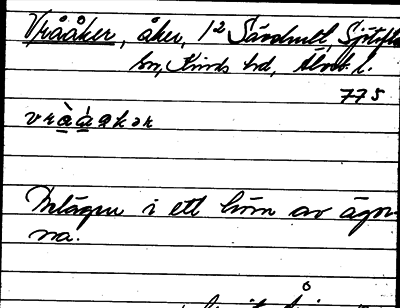 Vrååker, åker, 1/2 Sändhult, Sjötofta
sn, Kinds hd, Älvsb. l.
775
vråàakər
Belägen i ett hörn av ägor-
na.